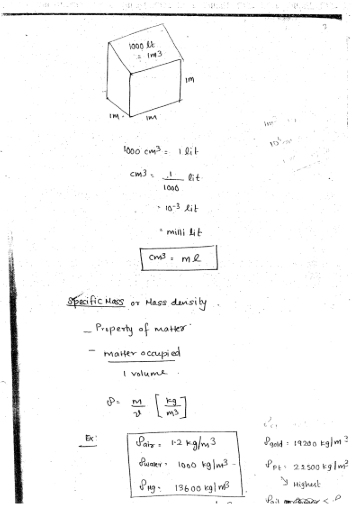 1000 lit
= 1m3
1m
1m
1m
1000 cm3 = 1 lit
cm3 = 1/1000 lit
= 10-3 lit
= milli lit
cm3 = ml
Specific Mass or Mass density
– Property of matter
– matter occupied
1 volume
ρ = m/v [kg/m3]
Ex:
ρair = 1.2 kg/m3
ρwater = 1000 kg/m3
ρHg = 13600 kg/m3
ρgold = 19200 kg/m3
= 23500 kg/m3
Highest